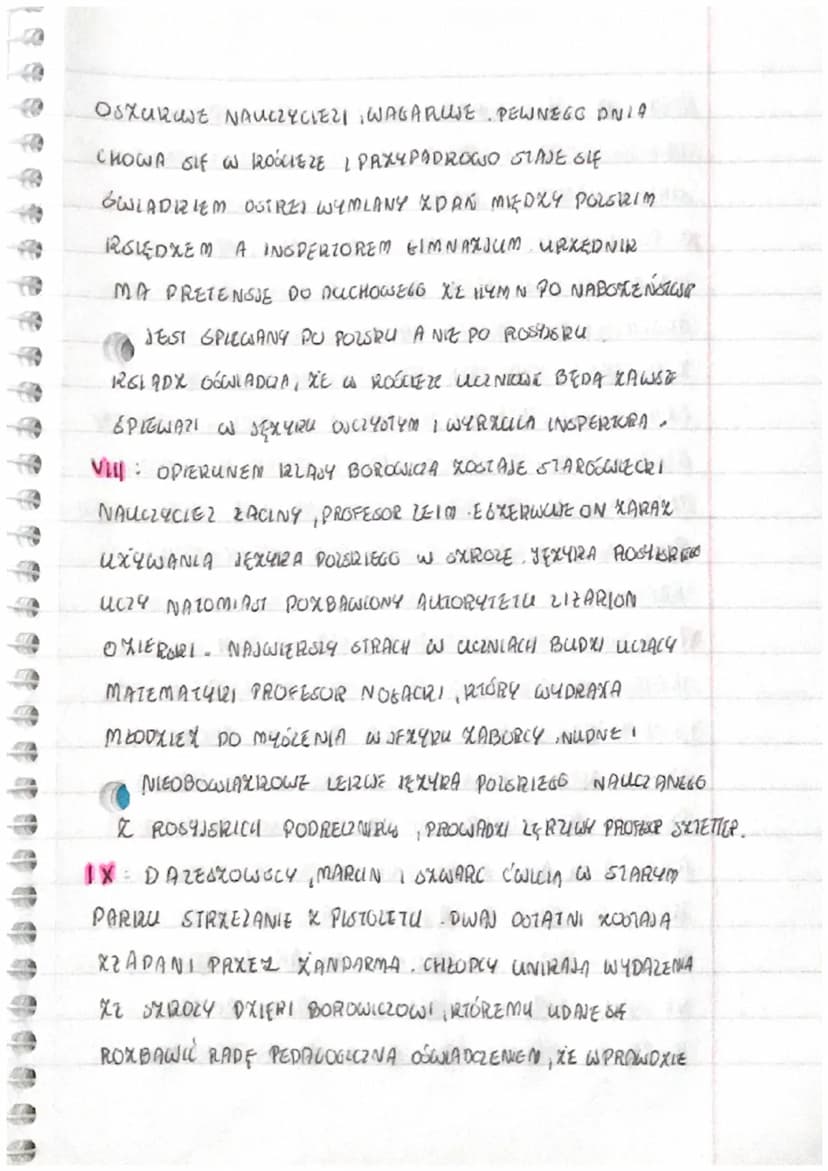 OSZUKUJE NAUCZYCIELI, WAGARUJE. PEWNEGO DNIA
CHOWA SIĘ W KOŚCIELE I PRZYPADKOWO STAJE SIĘ
ŚWIADKIEM OSTREJ WYMIANY ZDAŃ MIĘDZY POLSKIM
KSIĘDZEM A INSPEKTOREM GIMNAZJUM. URZĘDNIK
MA PRETENSJE DO DUCHOWEGO ŻE HYMN PO NABOŻEŃSTWIE
JEST ŚPIEWANY PO POLSKU A NIE PO ROSYJSKU.
KSIĄDZ OŚWIADCZA, ŻE W KOŚCIELE UCZNIOWIE BĘDĄ ZAWSZE
ŚPIEWALI W JĘZYKU OJCZYSTYM I WYRZUCA INSPEKTORA.
VIII: OPIEKUNEM KLASY BOROWICZA ZOSTAJE STAROŚWIECKI
NAUCZYCIEL ŁACINY, PROFESOR LEIM. EGZEKWUJE ON ZAKAZ
UŻYWANIA JĘZYKA POLSKIEGO W SZKOLE. JĘZYKA ROSYJSKIEGO
UCZY NATOMIAST POZBAWIONY AUTORYTETU ILIARION
OZIERSKI. NAJWIĘKSZY STRACH W UCZNIACH BUDZI UCZĄCY
MATEMATYKI PROFESOR NOGACKI, KTÓRY WDRAŻA
MŁODZIEŻ DO MYŚLENIA W JĘZYKU ZABORCY, NUDNE I
NIEOBOWIĄZKOWE LEKCJE JĘZYKA POLSKIEGO NAUCZANEGO
Z ROSYJSKICH PODRĘCZNIKÓW, PROWADZI LĘKLIWY PROFESOR SZTETTER.
IX: DALESZOWSCY, MARCIN I SZWARC ĆWICZĄ W STARYM
PARKU STRZELANIE Z PISTOLETU. DWAJ OSTATNI ZOSTAJĄ
ZŁAPANI PRZEZ ŻANDARMA. CHŁOPCY UNIKAJĄ WYDALENIA
ZE SZKOŁY DZIĘKI BOROWICZOWI, KTÓREMU UDAJE SIĘ
ROZBAWIĆ RADĘ PEDAGOGICZNĄ OŚWIADCZENIEM, ŻE WPRAWDZIE